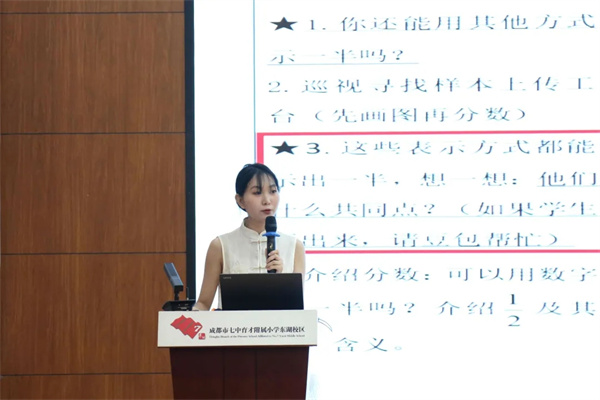 ★1. 你还能用其他方式
示一半吗？
2. 巡视寻找样本上传工
台（先画图再分数）
★3. 这些表示方式都能
示出一半，想一想：他们
什么共同点？（如果学生
出来，请豆包帮忙）
介绍分数：可以用数字
一半吗？介绍1/2及其
含义。
成都市七中育才附属小学东湖校区